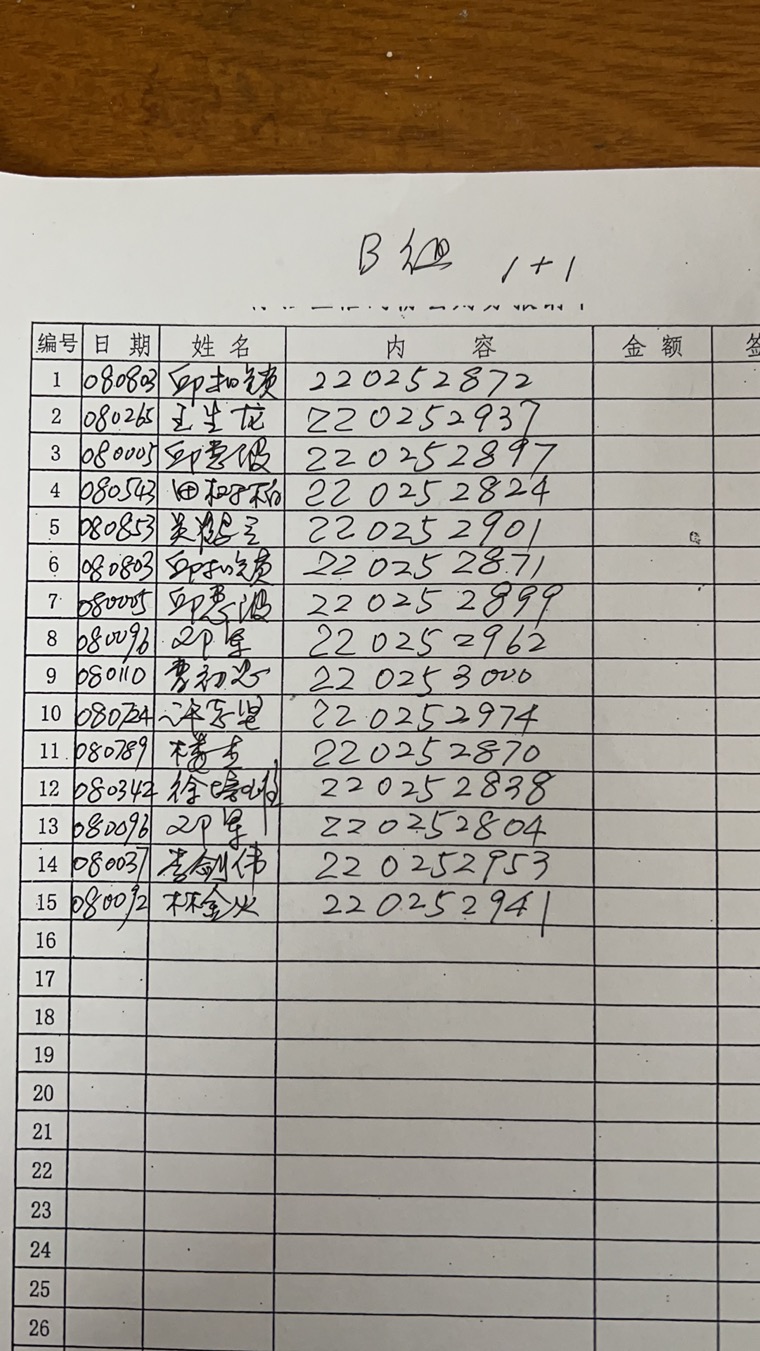 B组 1+1
编号 日期 姓名 内容 金额 签
1 080803 邱扣锁 220252872
2 080265 王生龙 220252937
3 080005 邱惠波 220252897
4 080543 田 220252824
5 080853 吴 220252901
6 080803 邱扣锁 220252871
7 080005 邱惠波 220252899
8 080096 邓军 220252962
9 080110 曹初 220253000
10 080724 220252974
11 080789 楼 220252870
12 080342 徐培 220252838
13 080096 邓军 220252804
14 080037 李剑伟 220252953
15 080092 林金火 220252941
16
17
18
19
20
21
22
23
24
25
26